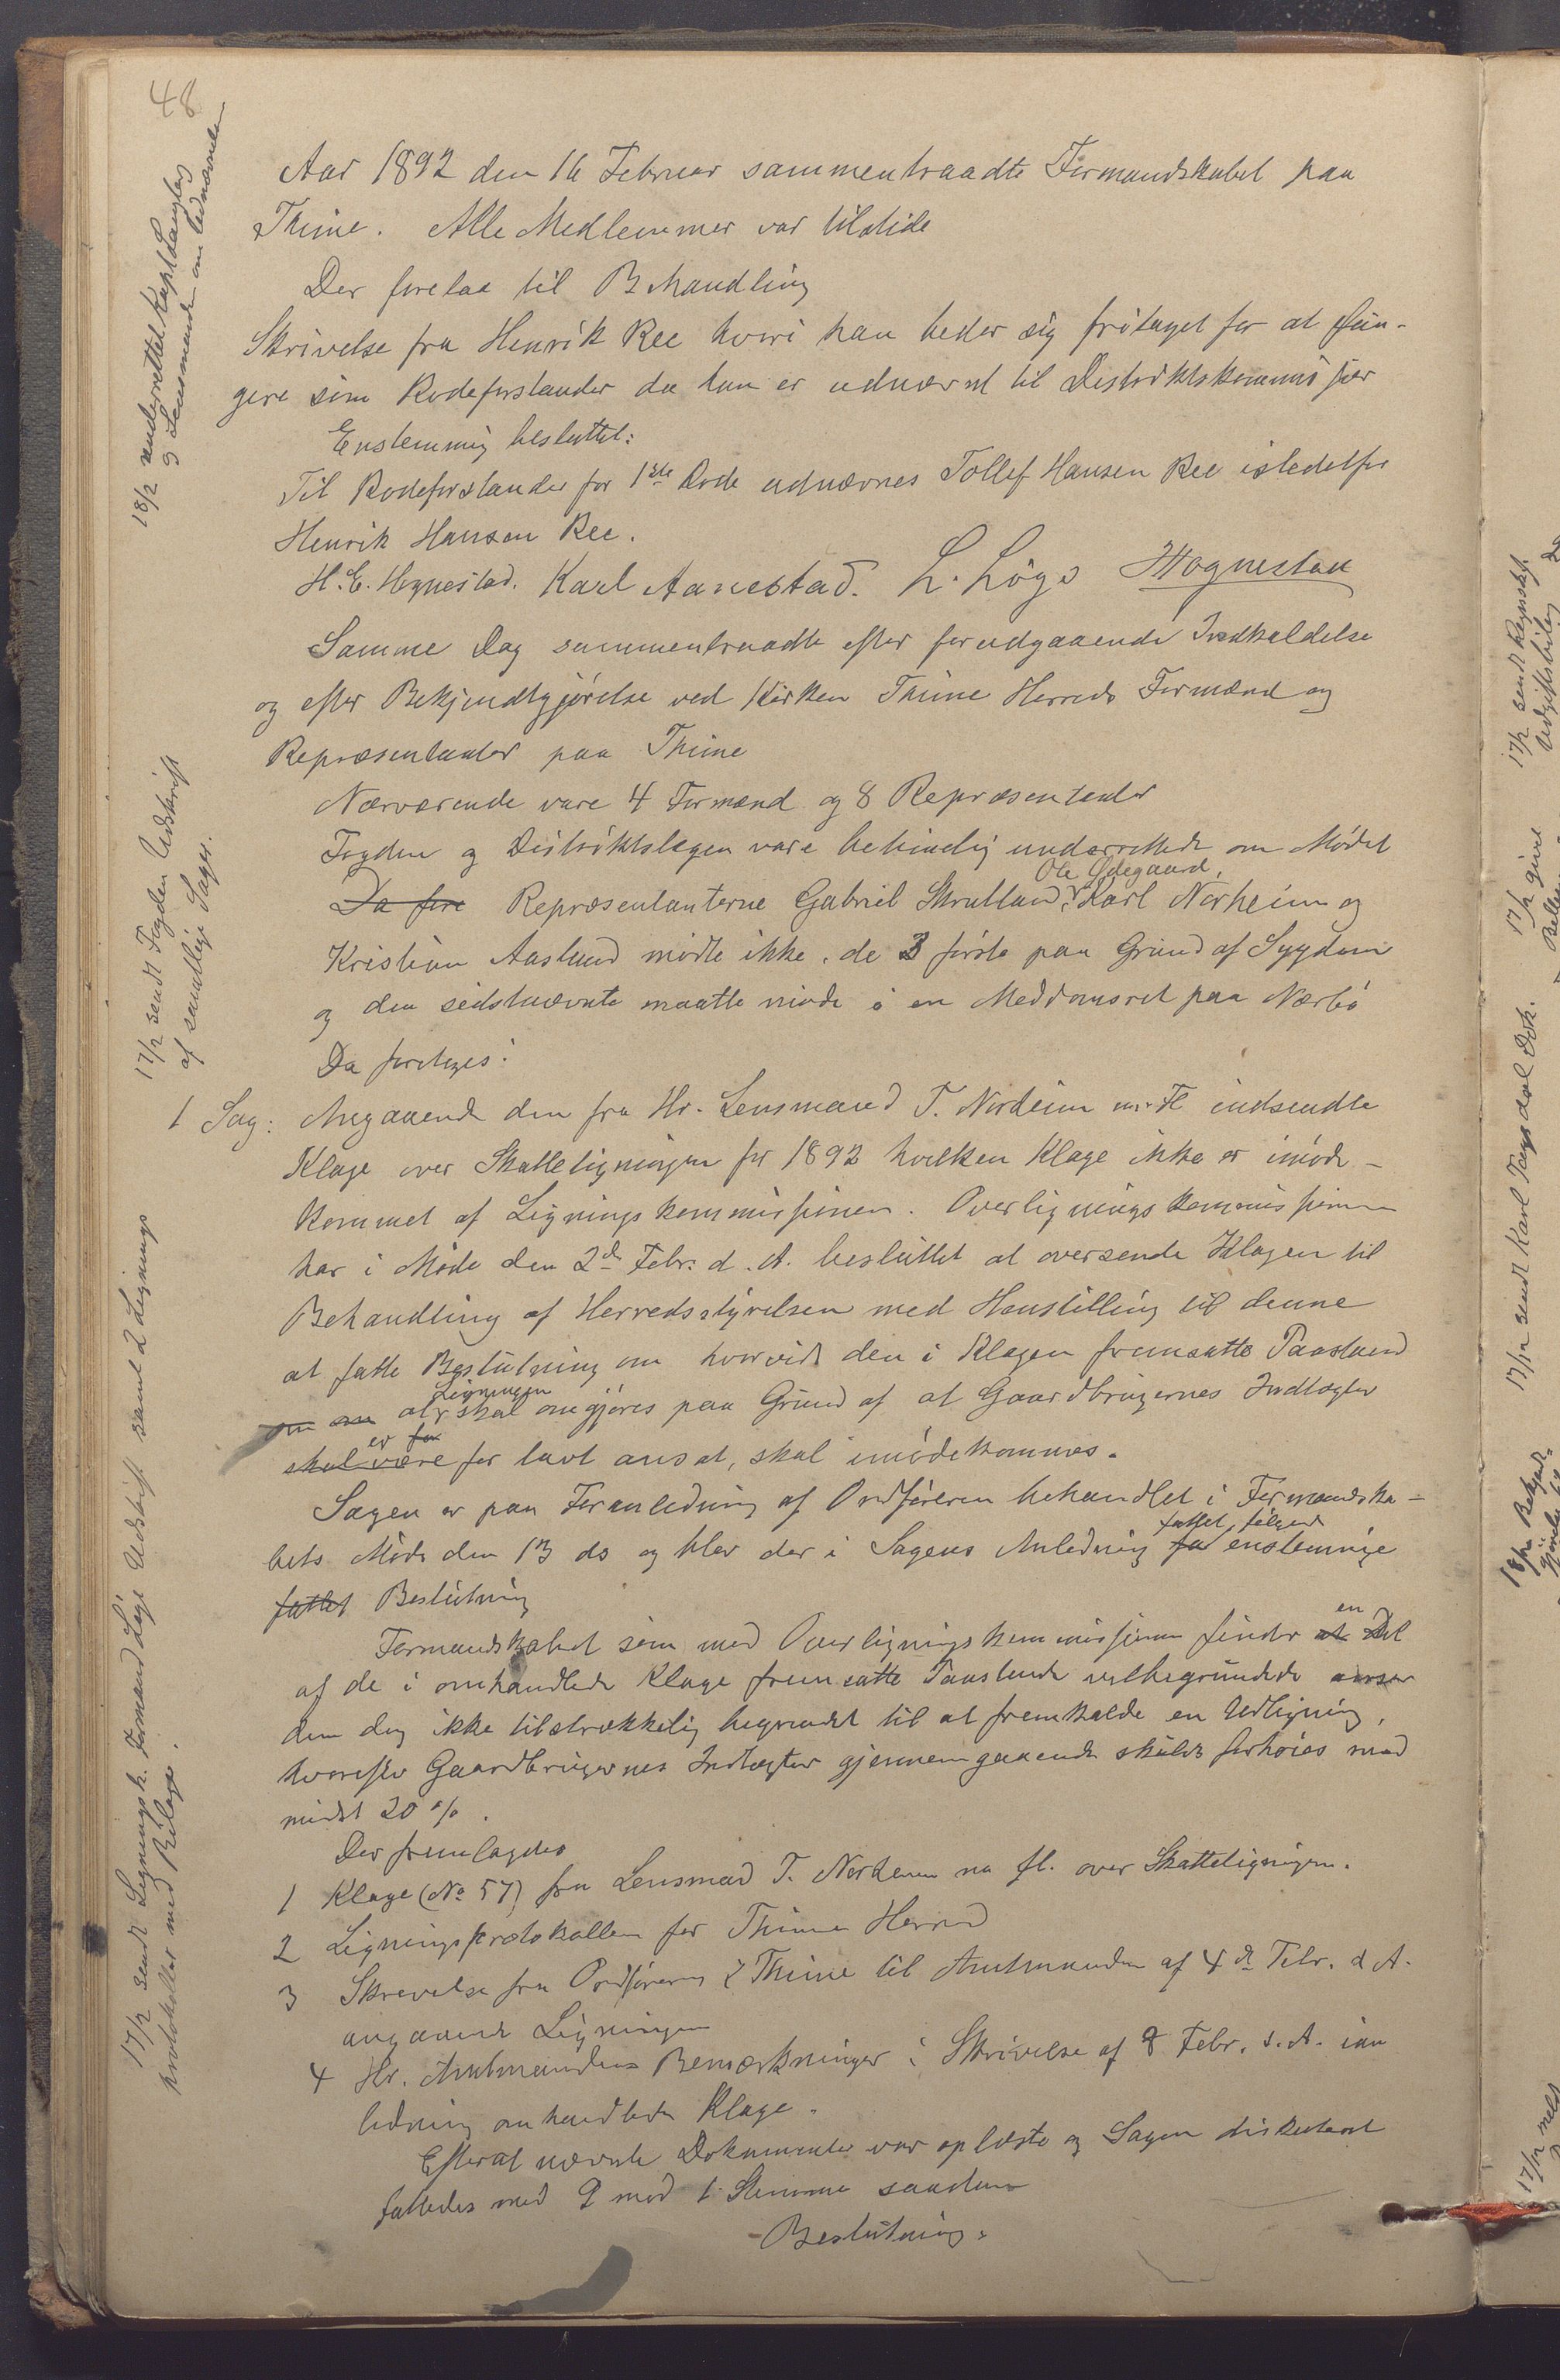 48
Aar 1892 den 16 Februar sammentraadte Formandskabet paa
Thime. Alle Medlemmer var tilstede
Der forelaa til Behandling
Skrivelse fra Henrik Ree hvori han beder sig fritaget for at fun-
gere som Rodeforstander da han er udnævnt til Distriktskommissær
Enstemmig besluttet:
Til Rodeforstander for 1ste Rode udnævnes Tollef Hansen Ree istedetfor
Henrik Hansen Ree.
H. E. Hognestad. Karl Aanestad. L. Løge Hognestad
Samme Dag sammentraadte efter forudgaaende Indkaldelse
og efter Bekjendtgjørelse ved Kirken Thime Herreds Formænd og
Repræsentanter paa Thime
Nærværende vare 4 Formænd og 8 Repræsentanter
Fogden og Distriktslægen vare betimelig underrettede om Mødet
Da fore Repræsentanterne Gabriel Skrudland, Ole Ødegaard, Karl Norheim og
Kristian Aasland mødte ikke, de 3 første paa Grund af Sygdom
og den sidstnævnte maatte møde i en Meddomsret paa Nærbø
Da foretoges:
1 Sag: Angaaende den fra Hr. Lensmand T. Norheim m. Fl indsendte
Klage over Skatteligningen for 1892 hvilken Klage ikke er imøde-
kommet af Ligningskommissionen. Overligningskommissionen
har i Møde den 2d Febr. d. A. besluttet at oversende Klagen til
Behandling af Herredsstyrelsen med Henstilling til denne
at fatte Beslutning om hvorvidt den i Klagen fremsatte Paastand
om at Ligningen skal omgjøres paa Grund af at Gaardbrugernes Indtægter
skal være er for lavt ansat, skal imødekommes.
Sagen er paa Foranledning af Ordføreren behandlet i Formandska-
bets Møde den 13 ds og blev der i Sagens Anledning fattet følgende enstemmige
fattet Beslutning
Formandskabet som med Overligningskommissionen finder en Del
af de i omhandlede Klage fremsatte Paastande velbegrundede anser
dem dog ikke tilstrækkelig begrundet til at fremkalde en Udligning,
hvorefter Gaardbrugernes Indtægter gjennemgaaende skulde forhøies med
mindst 20 %.
Der fremlagdes
1 Klage (No 57) fra Lensmand T. Norheim m fl. over Skatteligningen.
2 Ligningsprotokollen for Thime Herred
3 Skrivelse fra Ordføreren i Thime til Amtmanden af 4de Febr. d A.
angaaende Ligningen
4 Hr. Amtmandens Bemærkninger i Skrivelse af 8 Febr. d. A. ian
ledning omhandlede Klage.
Efterat nævnte Dokumenter var oplæste og Sagen diskuteret
fattedes med 9 mod 1 Stemme saadan
Beslutning:
18/2 underrettet
og Lensmanden om Udnævnelsen
17/2 sendt Fogden Udskrift
af samtlige Sager.
17/2 sendt Ligningsk. Formand Løge Udskrift samt 2 Lignings
protokoller med Bilage.
17/2 sendt
17/2 givet
17/2 sendt Karl Taugsdal Dok.